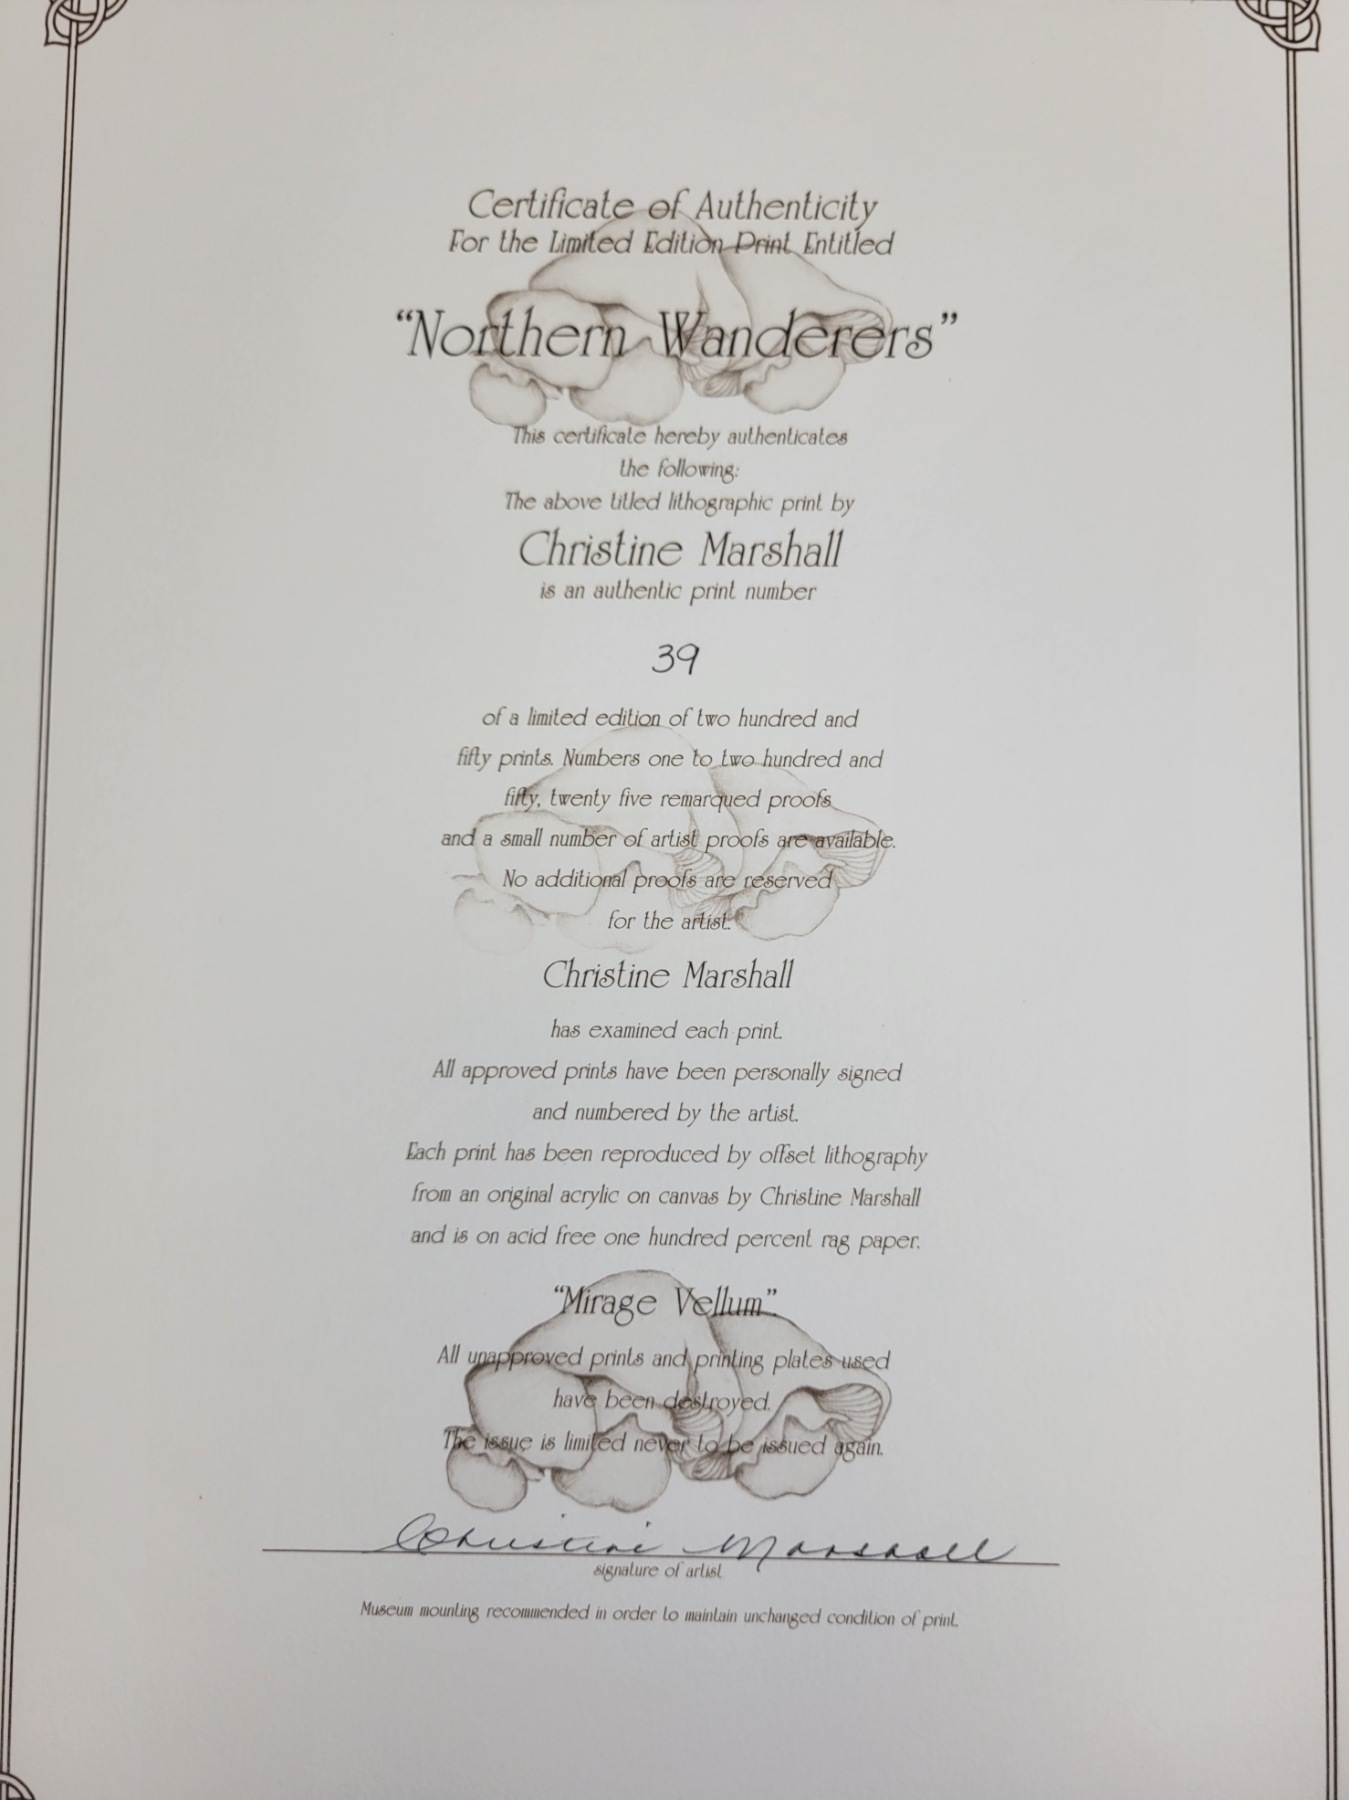 Certificate of Authenticity
For the Limited Edition Print Entitled
“Northern Wanderers”
This certificate hereby authenticates
the following:
The above titled lithographic print by
Christine Marshall
is an authentic print number
39
of a limited edition of two hundred and
fifty prints. Numbers one to two hundred and
fifty, twenty five remarqued proofs
and a small number of artist proofs are available.
No additional proofs are reserved
for the artist.
Christine Marshall
has examined each print.
All approved prints have been personally signed
and numbered by the artist.
Each print has been reproduced by offset lithography
from an original acrylic on canvas by Christine Marshall
and is on acid free one hundred percent rag paper.
“Mirage Vellum”.
All unapproved prints and printing plates used
have been destroyed.
The issue is limited never to be issued again.
Christine Marshall
signature of artist
Museum mounting recommended in order to maintain unchanged condition of print.